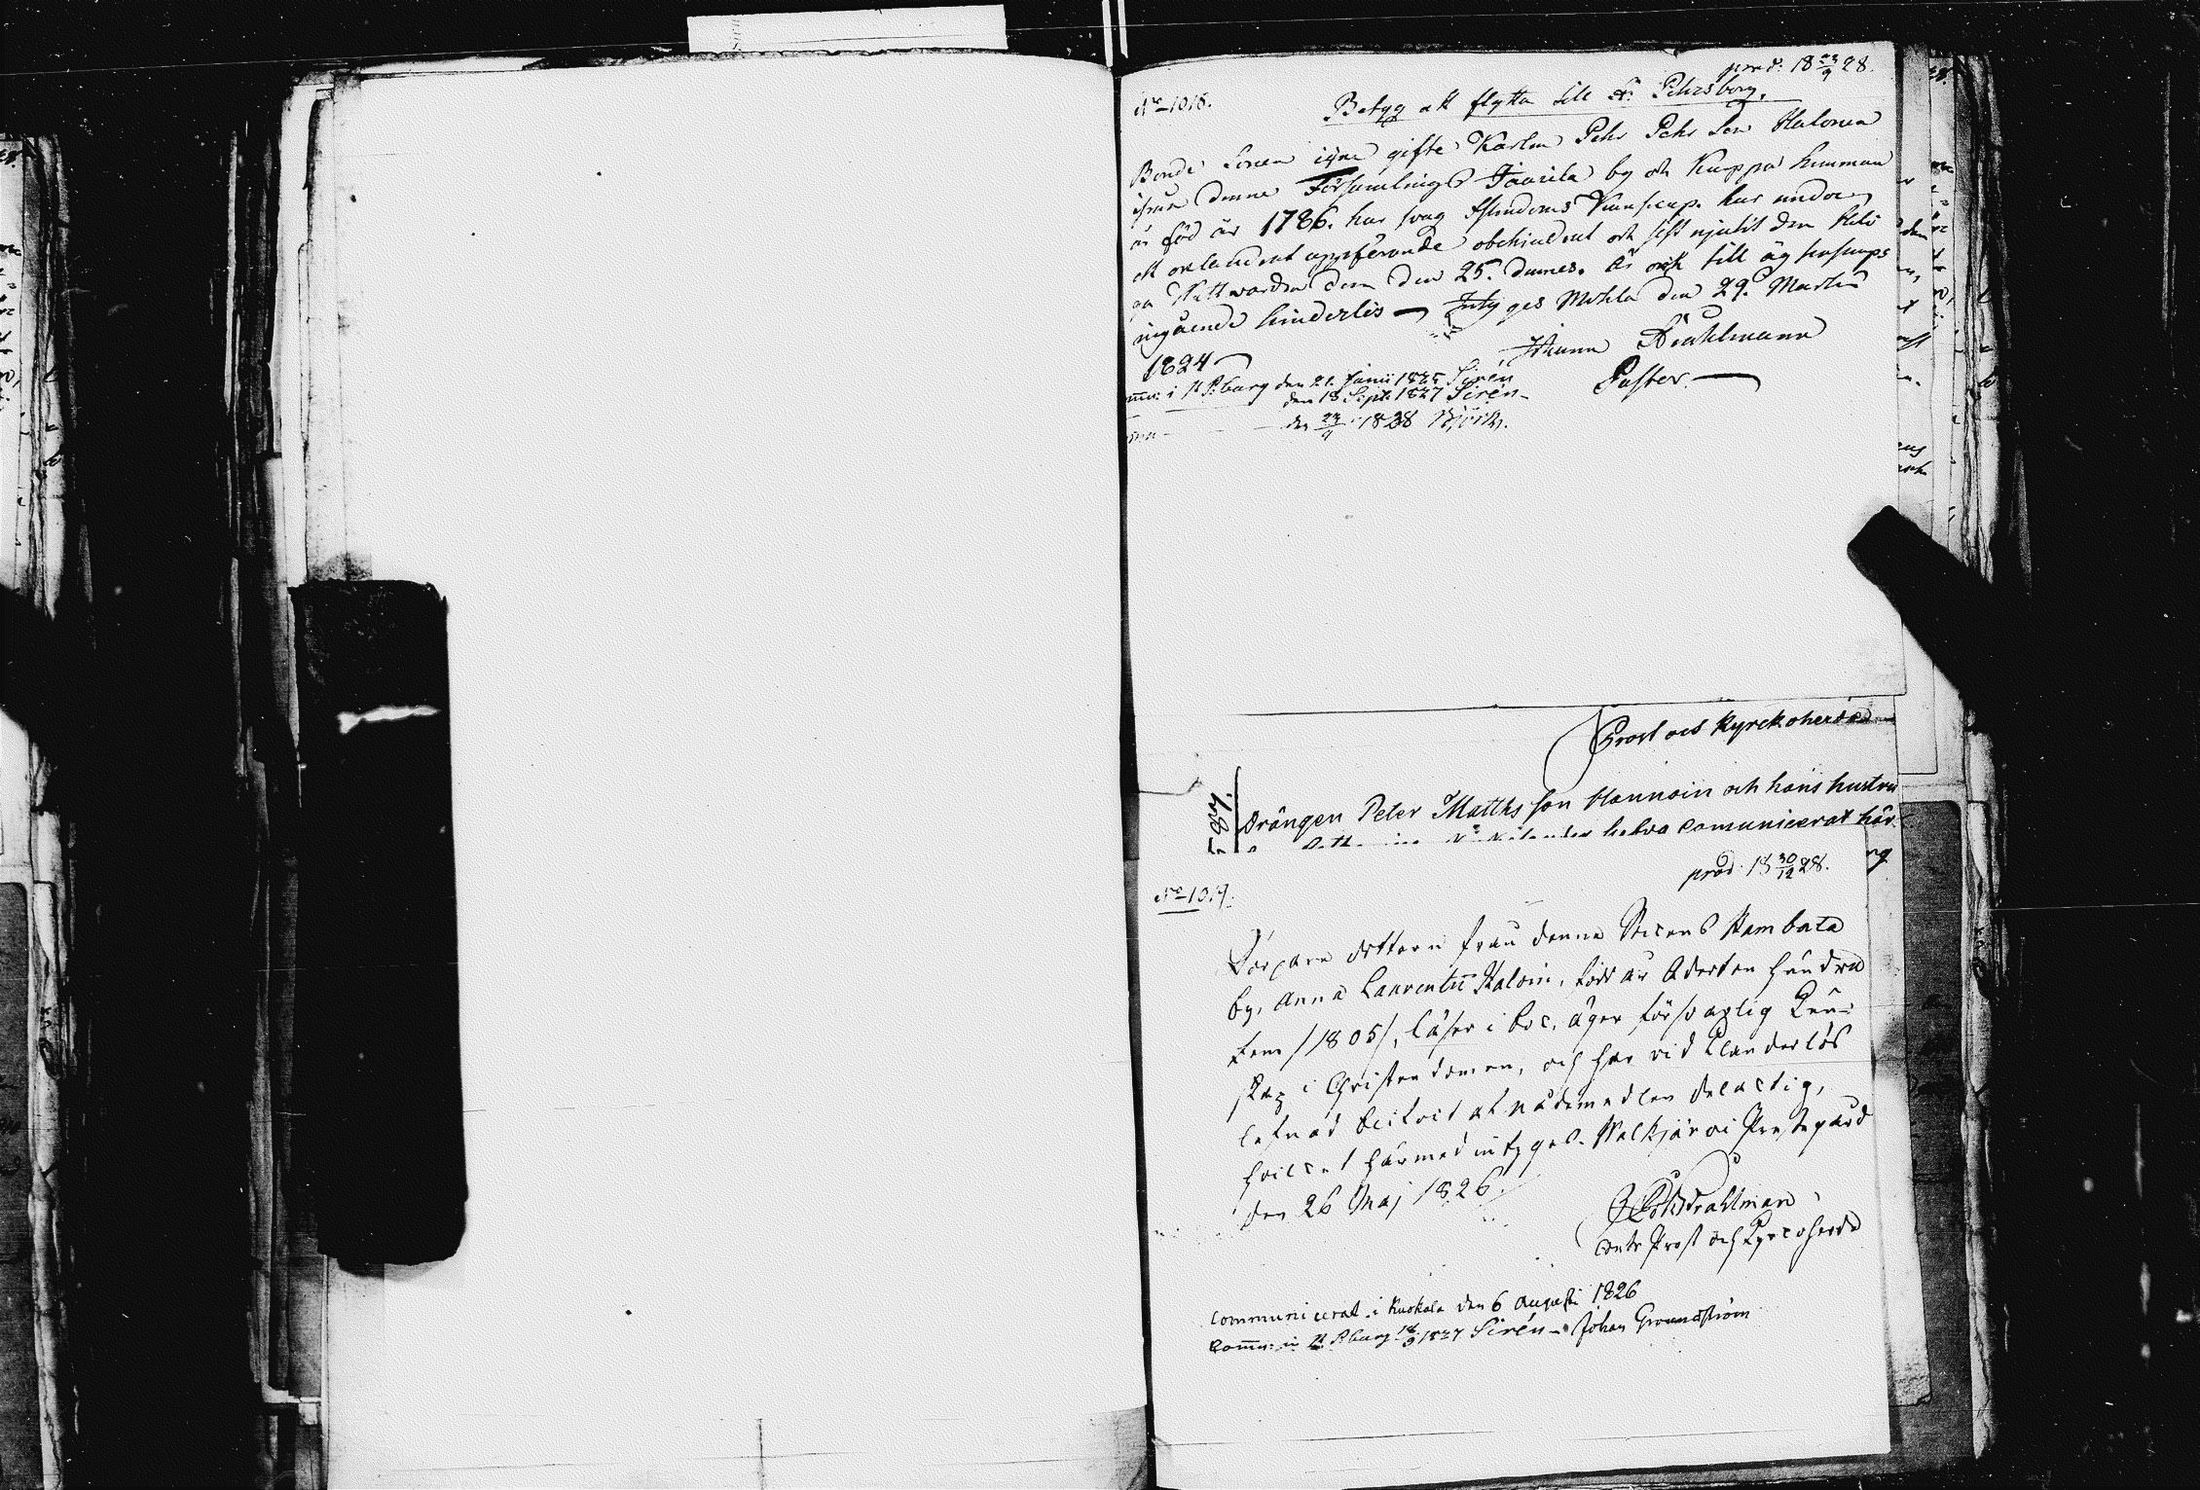 prod. 18 23/9 28.
No 1016.
Betyg att flytta till St. Petersborg.
Bonde Sonen ogifte Karlen Pehr Pehrs Son Halonen
ifrån denna Församlings Taurila by och Kuppa hemman
är född år 1786. har svag Christendoms Kunscap. har under
ett oklandrat uppförande obehindrat och sist njutit den Heli
ga Nattvarden den 25. dennes. Är ock till ägtenskaps
ingående hinderlös — Intyges Mohla den 29. Martii
1824
Johann Strahlmann
Pastor.
Comm: i St P:burg den 21. Junii 1825 Sirén
den 18 Sept: 1827 Sirén
den 23/9 1828
Prost och Kyrckoherde
Drängen Peter Matths son Hannoin och hans hustru
hafva comunicerat här
prod. 18 30/12 28.
No 1017.
Torpare dottern från denna Sockens Kambala
by, Anna Laurentii Haloin, född år Aderton hundra
fem /1805/, läser i bok, äger försvarlig Kun-
skap i Christendomen, och har vid klanderlös
lefnad blifvit af nådemedlen delactig,
hvilcet härmed intygas. Walkjärvi Prestegård
den 26 Maj 1826.
Strahlman
Contr Prost och Kyrcoherde
Communicerat i Kuokala den 6 Augusti 1826
Johan Grounström
Comm: in St P:burg 18/9 1827 Sirén